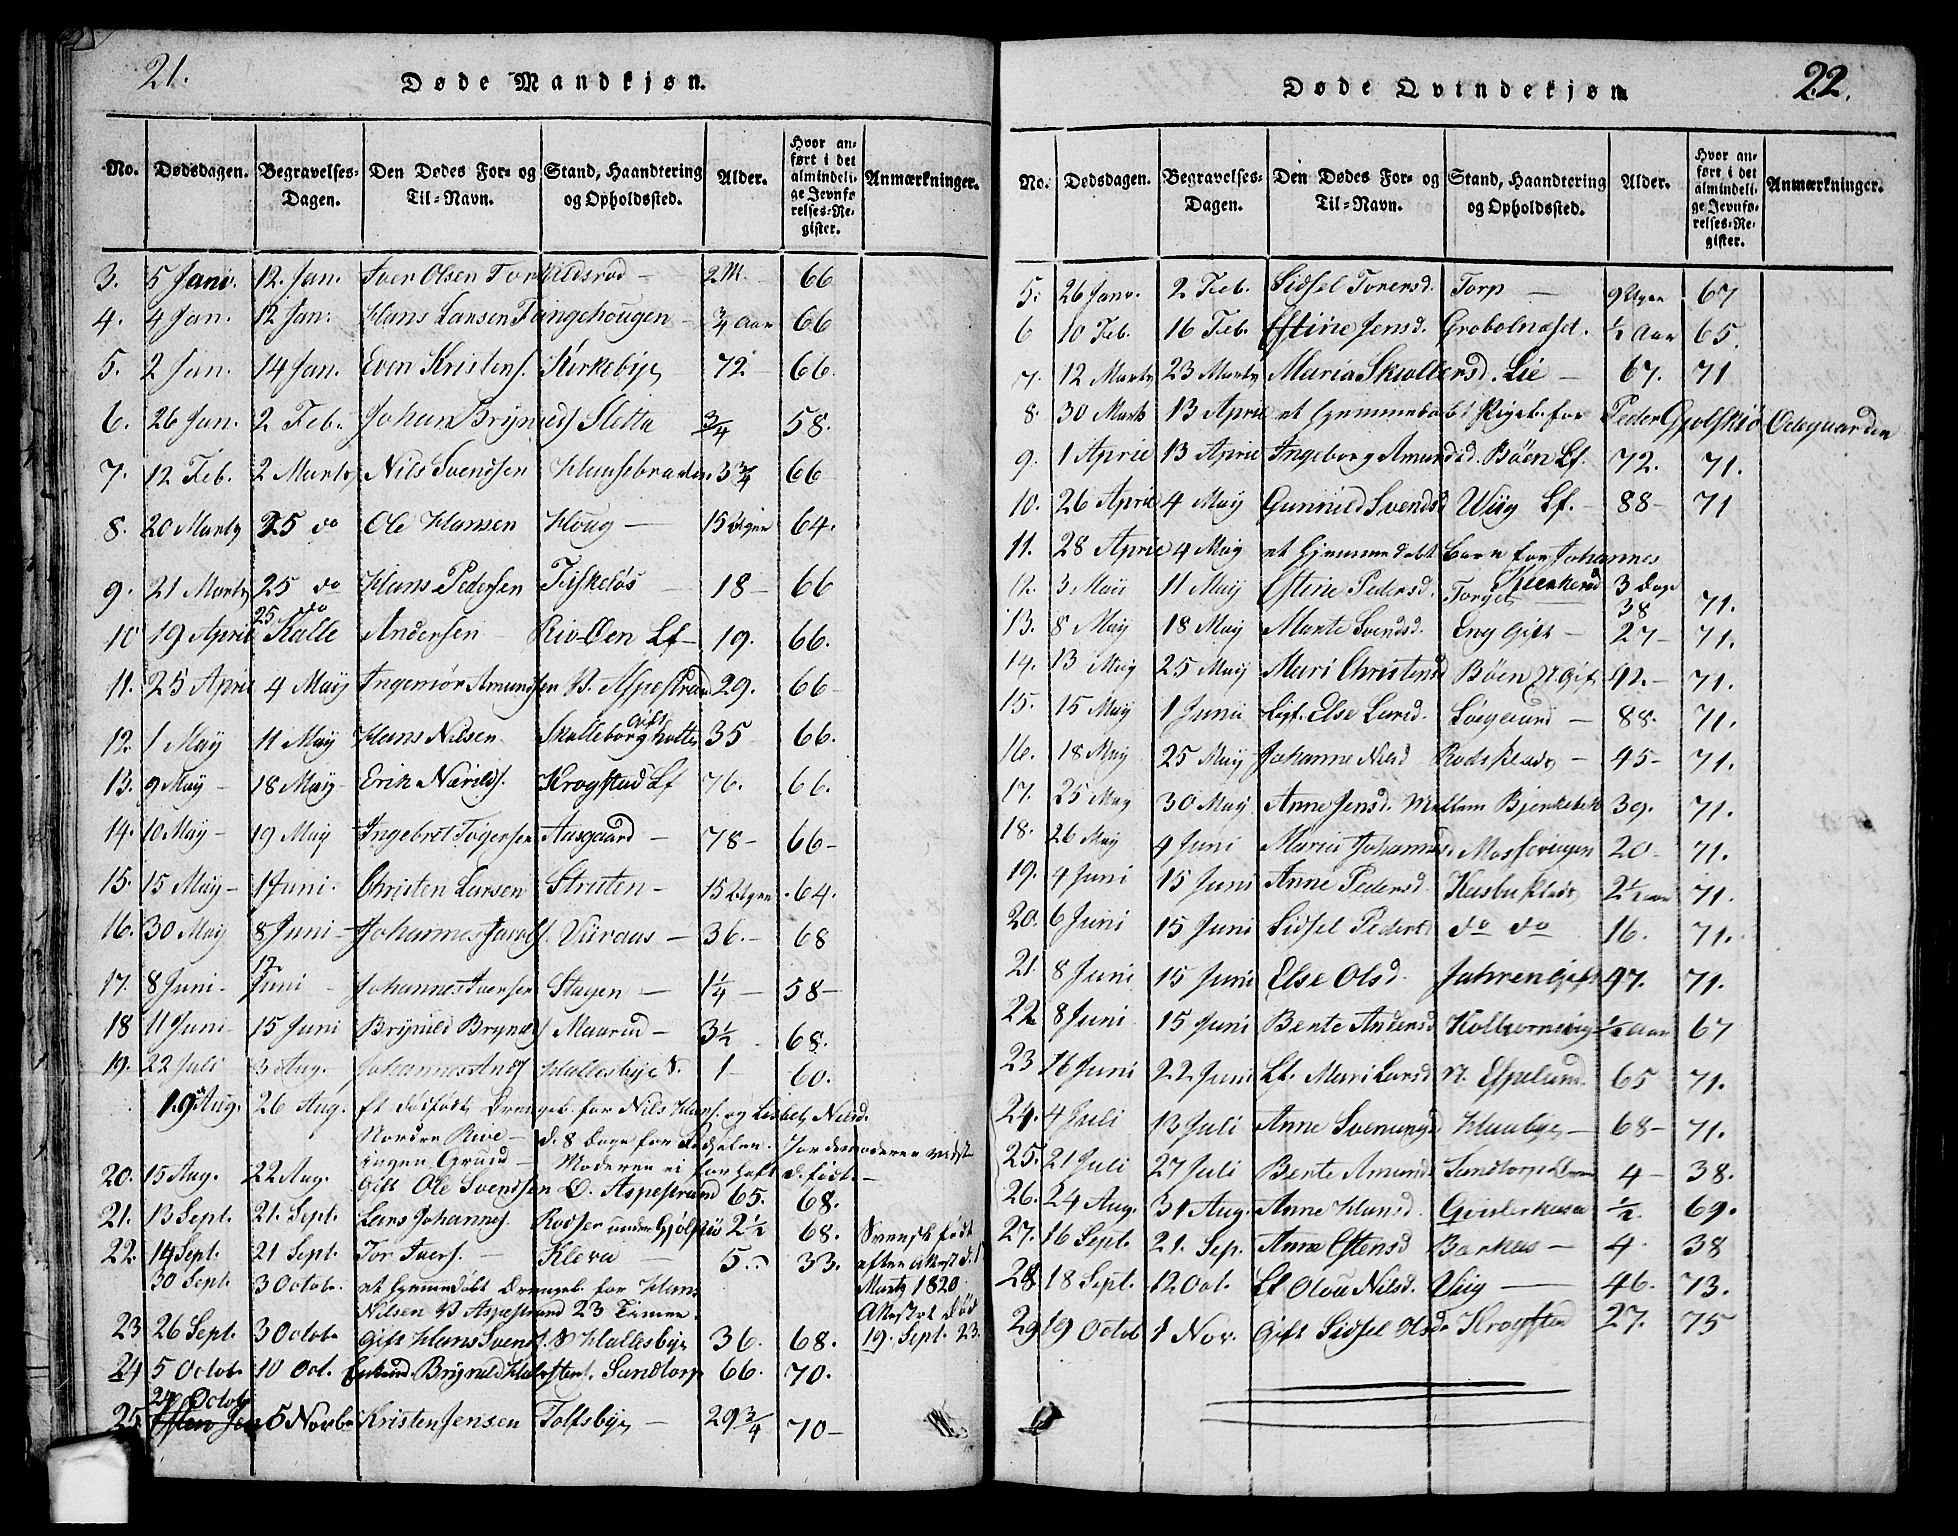 21.
Døde Mandkjøn.
No.
Dødsdagen.
Begravelses-Dagen.
Den Dødes For- og Til-Navn.
Stand, Haandtering og Opholdssted.
Alder.
Hvor anført i det almindelige Jevnførelses-Register.
Anmærkninger.
3. 5 Jani. 12. Jan. Iver Olsen Torkildsrød — 2 M. 66
4. 4 Jan. 12 Jan. Hans Larsen Tangehougen — 3/4 Aar 66
5. 2 Jan. 14 Jan. Even Kristens. Kirkebye 72 66.
6. 26 Jan. 2 Feb. Johan Brynilds Sletta 3/4 58.
7. 12 Feb. 2 Marty Nils Svendsen 3 3/4 66
8. 20 Marty 25 do Ole Hansen Houg — 15 Uger 64.
9. 21 Marty 25 do Hans Pedersen Fiskeløs 18 — 66
10 19 April 25 do Kalle Andersen — Riv-Oen Lf — 19. 66.
11. 25 April 4 Maÿ Ingemor Amundsen V. Aspestrand 29. 66 —
12. 1 Maÿ 11 Maÿ Hans Nilsen Gift Skalleborgholte 35 66.
13. 9 Maÿ — 18 Maÿ — Erik Narilds. Krogstad Lf 76. 66.
14. 10 Maÿ — 19 Maÿ Ingebret Togersen Aasgaard — 78 — 66 —
15. 15 Maÿ — 1 Juni. Christen Larsen Struten — 15 Uger 64.
16. 30 Maÿ 8 Juni — Johannes Jacobs. Viiraas — 36. — 68
17. 8 Juni — 12 Juni — Johannes Iversen Stagen — 1 1/4 — 58 —
18 11 Juni — 15 Juni Brynild Brynilds Maarud — 3 1/2 68.
19. 22 Juli 3 Aug. Johannes Ands Hallesbye S. 1 — 60.
19 Aug. 26 Aug. Et dødfødt Drengeb. for Nils Hans. og Lisbet Nilsd.
Nordre Rive — d. 8 Dage for Fødselen. Jordemoderen vidste
ingen Grund — Moderen ei forhaft d. født. —
20. 15 Aug. 22 Aug. Gift Ole Svendsen Ø. Aspestrand 65. 68.
21. 13 Sept. 21. Sept. Lars Johannes. Rødser under Gjølsiø 2 1/2 68. Svensk født
22. 14 Sept. 21 Sept. Tor Ivers. — Kleva — 5 33. efter Attest d. 1
30 Sept. 3 Octobr. et hjemmedøbt Drengeb. for Hans Martz 1820.
Nilsen V Aspestrand 23 Timer. Attestet død
23 26 Sept. 3 Octobr Gift Hans Svends. S Hallesbye 36. 68. 19. Sept. 23.
24 5 Octobr 10 Oct. Enkem. Brynild Halvorsen. Sandtorp 66. 70.
25. 24 Octobr 5 Novbr Kristen Jensen Tolfsbye — 29 3/4 70 —
22.
Døde Qvindekjøn
No.
Dødsdagen.
Begravelses-Dagen.
Den Dødes For- og Til-Navn.
Stand, Haandtering og Opholdssted.
Alder.
Hvor anført i det almindelige Jevnførelses-Register.
Anmærkninger.
5. 26 Janv. 2 Feb. Sidsel Torersd. Torp — 9 Uger 67
6 10 Feb. 16 Feb. Estine Jensd. Grobolnæset. 1/2 Aar 65.
7. 12 Marty 23 Marty Maria Skiollersd. Lie — 67. 71
8. 30 Mart 13 April et hjemmedøbt Pigeb. for Peder Gjølsiø Ødegaarden
9. 1 April 13 April Ingeborg Amundsd. Böen Lf. 72. 71.
10. 26 April 4 Maÿ Gunnild Svendsd Wiig Lf. — 88 — 71
11. 28 April 4 Maÿ et hjemmedøbt Barn for Johannes
12. 3 Maii 11 Maÿ Estine Pedersd. Torget 3 Dage 38 71.
13. 8 Maÿ 18 Maÿ Marte Svendsd. Eng Gift — 27 — 71.
14. 13 Maÿ 25 Maÿ Mari Christensd Böen Ugift 42. — 71.
15. 15 Maÿ 1 Junii Ligf. Else Larsd. Søegaard — 88. 71.
16. 18 Maÿ 25 Maÿ Johanne Nilsd Rødskladt — 45 — 71.
17. 25 Maÿ 30 Maÿ Anne Jensd. Mellem Bjerkebek 39. 71.
18. 26 Maÿ 4 Juni Maria Johannesd. Mosseviigen 20 — 71.
19. 4 Juni 15 Juni Anne Pedersd. Kasbukladt 2 1/2 aar 71.
20. 6 Juni 15 Juni Sidsel Pedersd do do 16. 71.
21. 8 Juni 15 Juni Else Olsd. Jahren Gift 47. 71.
22 8 Juni 15 Juni Bente Andersd Kolbiornsvig 1/2 Aar 67
23 16 Juni 22 Juni Lf. Mari Larsd N. Espelund 65 71.
24. 4 Juli 13 Juli Anne Svenungsd Haabye — 68 — 71.
25. 21 Juli 27 Juli Bente Amunds Sandtorp 4 — 38.
26. 24 Aug. 31 Aug. Anne Hansd. 1/2. 69.
27. 16 Sept. 21. Sep. Anne Estensd Barkas — 4. 38
28 18 Sept. 12 Oct. Lf Olou Nilsd. Viig — 46. 73.
29 19 Octob 1 Nov. Gift Sidsel Olsd. Krogstad 27. 75